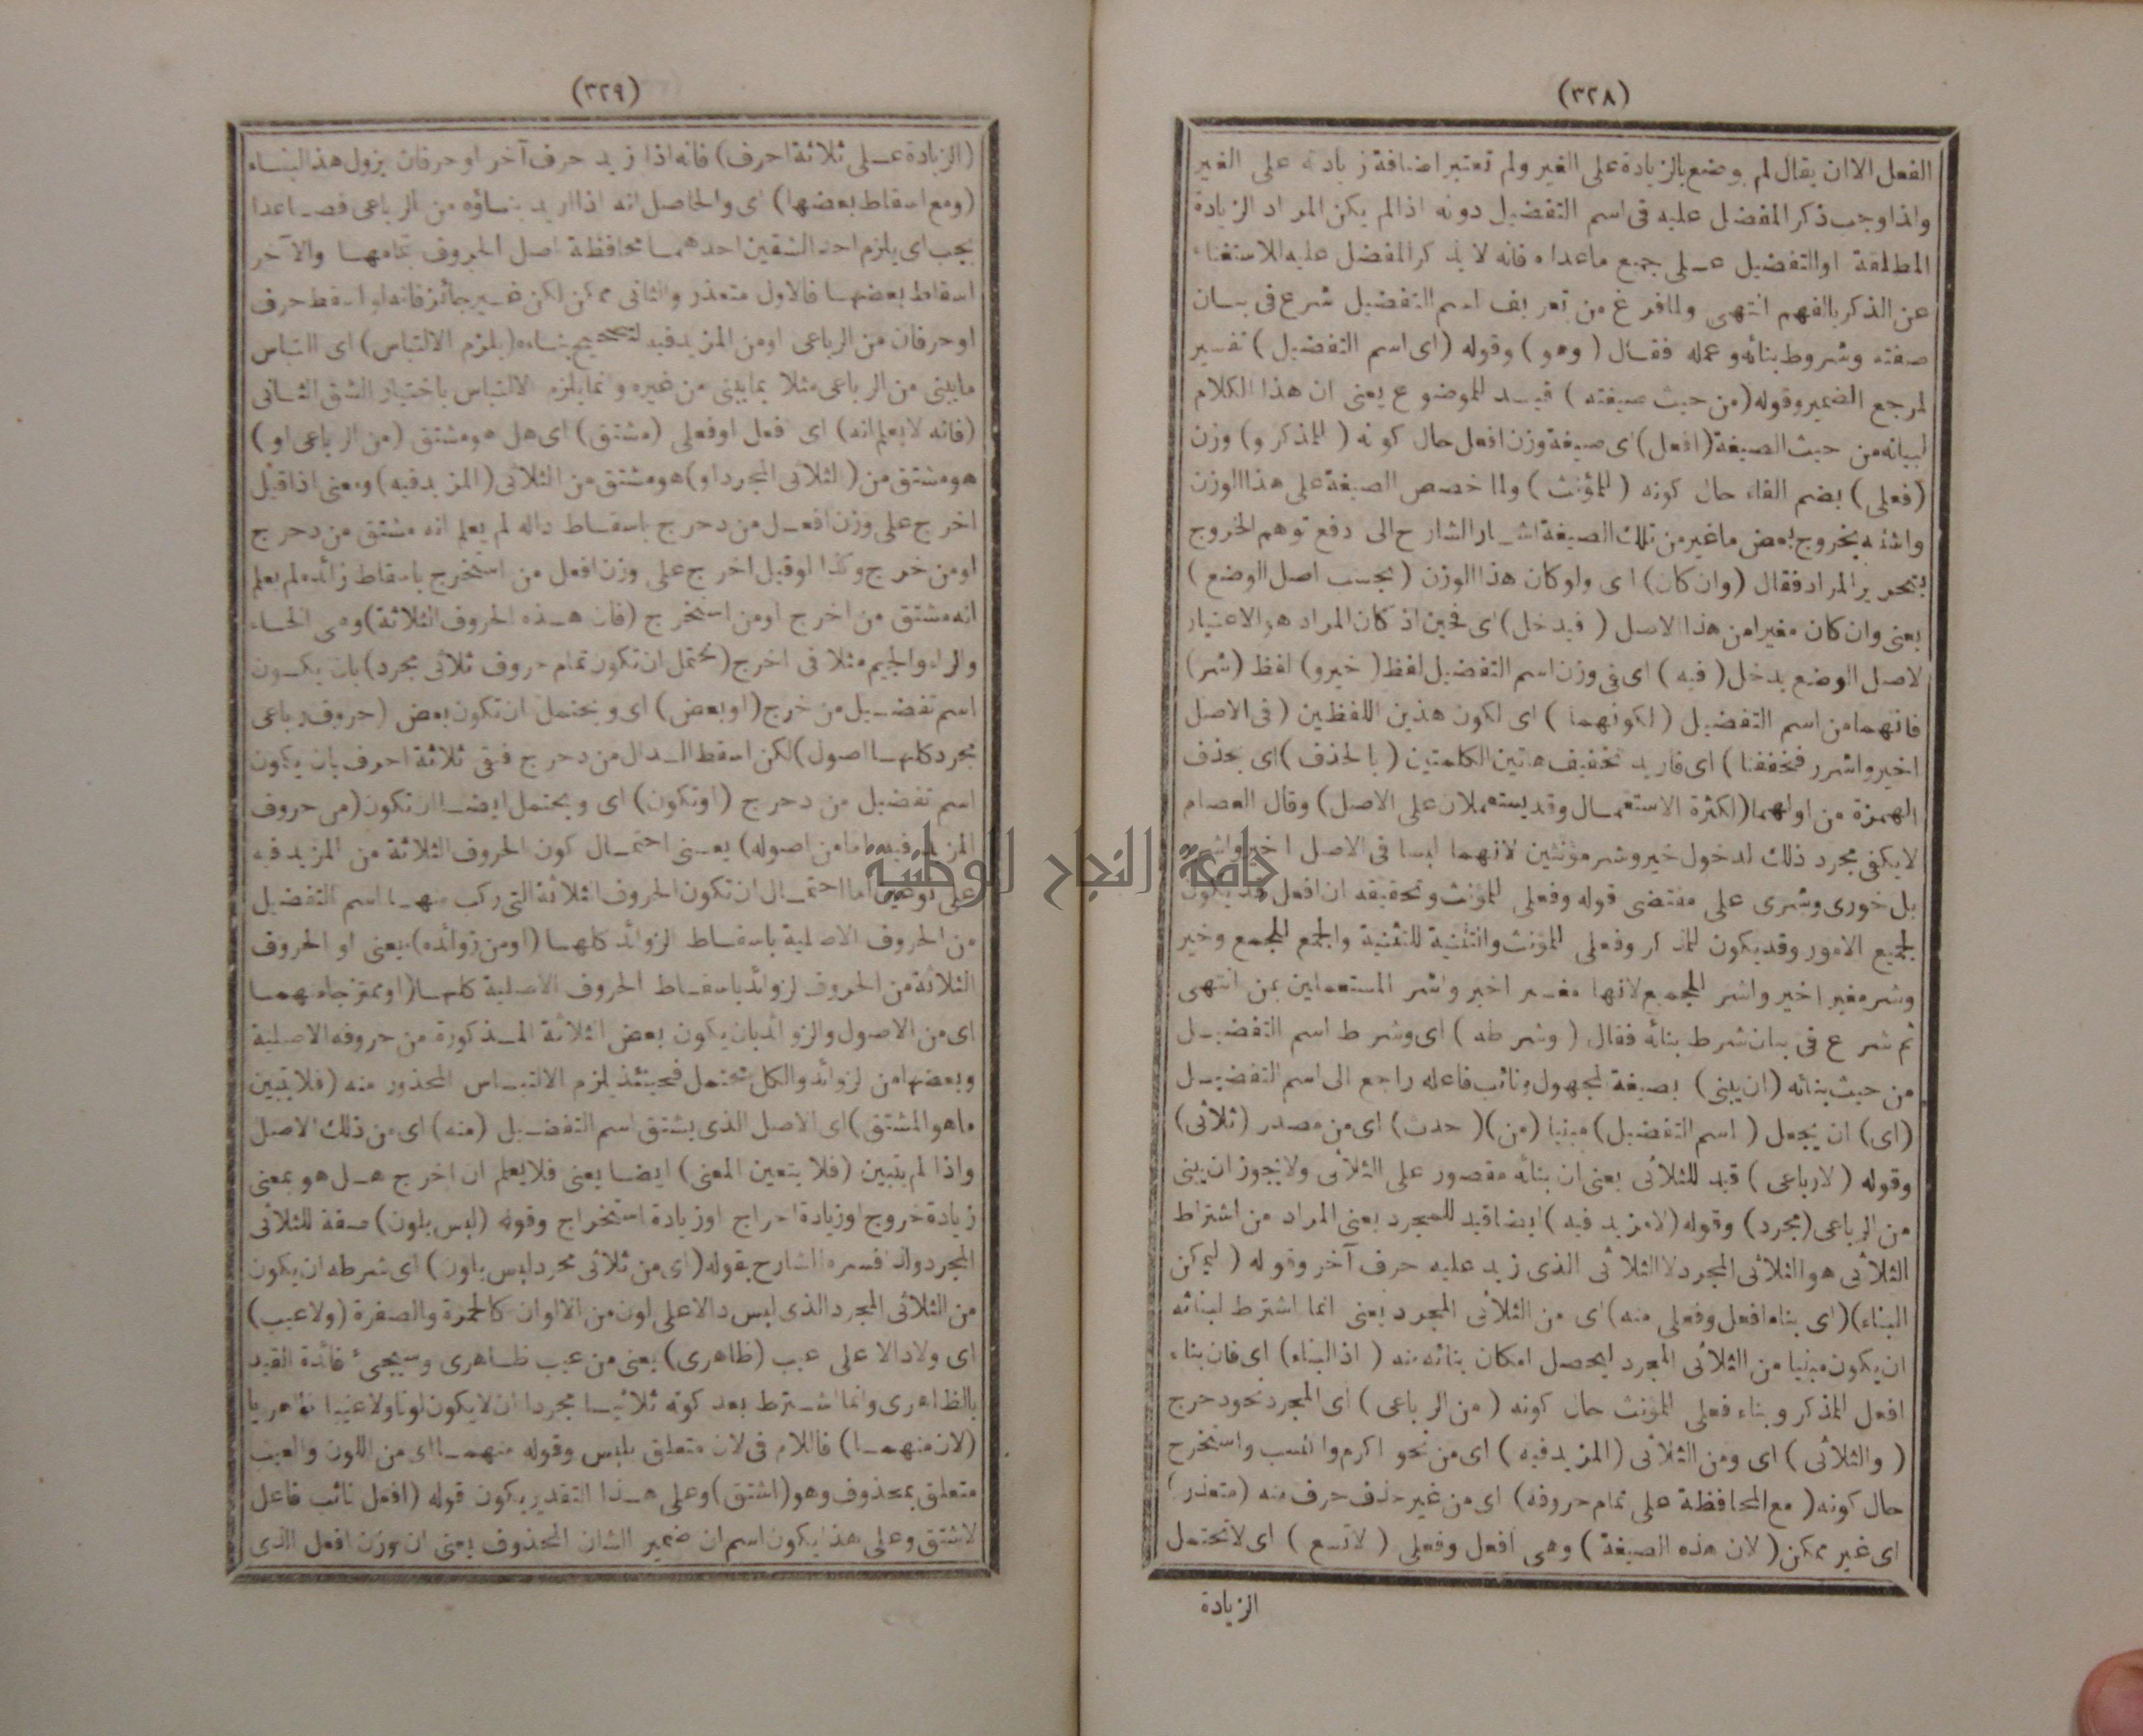 (٣٢٨)
الفعل الاان يقال لم يوضع بالزيادة على الغير ولم تعتبر اضافة زيادته على الغير
واذا وجب ذكر المفضل عليه فى اسم التفضيل دونه اذالم يكن المراد الزيادة
المطلقة اوالتفضيل عـلى جميع ماعداه فانه لا يذكر المفضل عليه للاستغناء
عن الذكر بالفهم انتهى ولمافرغ من تعريف اسم التفضيل شرع فى بيان
صفته وشروط بنائه وعمله فقال (وهو) وقوله (اى اسم التفضيل) تفسير
لمرجع الضمير وقوله (من حيث صيغته) قيد للموضوع يعنى ان هذا الكلام
لبيانه من حيث الصيغة (افعل) اى صيغة وزن افعل حال كونه (للمذكر و) وزن
(فعلى) بضم الفاء حال كونه (للمؤنث) ولما خصص الصيغة على هذا الوزن
واشتبه بخروج بعض ماغير من تلك الصيغة اشـار الشارح الى دفع توهم الخروج
بتحرير المراد فقال (وان كان) اى ولو كان هذا الوزن (بحسب اصل الوضع)
يعنى وان كان مغيرا من هذا الاصل (فيدخل) اى فحين اذ كان المراد هو الاعتبار
لاصل الوضع يدخل (فيه) اى فى وزن اسم التفضيل لفظ (خير و) لفظ (شر)
فانهما من اسم التفضيل (لكونهما) اى لكون هذين اللفظين (فى الاصل
اخير واشرر فخففتا) اى فاريد تخفيف هاتين الكلمتين (بالحذف) اى بحذف
الهمزة من اولهما (لكثرة الاستعمـال وقد يستعملان على الاصل) وقال العصام
لا يكفى مجرد ذلك لدخول خير وشر مؤنثين لانهما ليسا فى الاصل اخير واشر
بل خورى وشرى على مقتضى قوله وفعلى للمؤنث وتحقيقه ان افعل قد يكون
لجميع الامور وقد يكون للمذكر وفعلى للمؤنث والتثنية للتثنية والجمع للجمع وخير
وشر مغير اخير واشر للجميع لانها مغـير اخير واشر المستعملين بمن انتهى
ثم شرع فى بيان شرط بنائه فقال (وشرطه) اى وشرط اسم التفضيـل
من حيث بنائه (ان يبنى) بصيغة المجهول ونائب فاعله راجع الى اسم التفضيـل
(اى) ان يجعل (اسم التفضيل) مبنيا (من) (حدث) اى من مصدر (ثلاثى)
وقوله (لارباعى) قيد للثلاثى يعنى ان بنائه مقصور على الثلاثى ولا يجوز ان يبنى
من الرباعى (مجرد) وقوله (لا مزيد فيه) ايضا قيد للمجرد يعنى المراد من اشتراط
الثلاثى هو الثلاثى المجرد لا الثلاثى الذى زيد عليه حرف آخر وقوله (ليمكن
البناء) (اى بناء افعل وفعلى منه) اى من الثلاثى المجرد يعنى انما اشترط لبنائه
ان يكون مبنيا من الثلاثى المجرد ليحصل امكان بنائه منه (اذ البناء) اى فان بناء
افعل المذكر وبناء فعلى المؤنث حال كونه (من الرباعى) اى المجرد نحو دحرج
(والثلاثى) اى ومن الثلاثى (المزيد فيه) اى من نحو اكرم واكتسب واستخرج
حال كونه (مع المحافظة على تمام حروفه) اى من غير حذف حرف منه (متعذر)
اى غير ممكن (لان هذه الصيغة) وهى افعل وفعلى (لا تسع) اى لا تحتمل
الزيادة
(٣٢٩)
(الزيادة عـلى ثلاثة احرف) فانه اذا زيد حرف آخر او حرفان يزول هذا البناء
(ومع اسقاط بعضها) اى والحاصل انه اذا اريد بنـاؤه من الرباعى فصـاعدا
يجب اى يلزم احد الشقين احدهمـا محافظة اصل الحروف بتمامهـا والآخر
اسقاط بعضهـا فالاول متعذر والثانى ممكن لكن غـير جائز فانه لو اسقط حرف
او حرفان من الرباعى او من المزيد فيه لتصحيح بنـاءه (يلزم الالتباس) اى التباس
مايبنى من الرباعى مثلا بما يبنى من غيره وانما يلزم الالتباس باختيار الشق الثـانى
(فانه لا يعلم انه) اى افعل او فعلى (مشتق) اى هل هو مشتق (من الرباعى او)
هو مشتق من (الثلاثى المجرد او) هو مشتق من الثلاثى (المزيد فيه) ويعنى اذا قيل
اخرج على وزن افعـل من دحرج باسقـاط داله لم يعلم انه مشتق من دحرج
او من خرج وكذا لو قيل اخرج على وزن افعل من استخرج باسقاط زائده لم يعلم
انه مشتق من اخرج او من استخرج (فان هـذه الحروف الثلاثة) وهى الخـاء
والراء والجيم مثلا فى اخرج (تحتمل ان تكون تمام حروف ثلاثى مجرد) بان يكـون
اسم تفضـيل من خرج (او بعض) اى ويحتمل ان تكون بعض (حروف رباعى
مجرد كلهـا اصول) لكن اسقط الـدال من دحرج فبقى ثلاثة احرف بان يكون
اسم تفضيل من دحرج (او تكون) اى ويحتمل ايضـا ان تكون (من حروف
المزيد فيه اما من اصوله) يعـنى احتمـال كون الحروف الثلاثة من المزيد فيه
على نوعين اما احتمـال ان تكون الحروف الثلاثة التى ركب منهـا اسم التفضيل
من الحروف الاصلية باسقـاط الزوائد كلهـا (او من زوائده) يعنى او الحروف
الثلاثة من الحروف الزوائد باسقـاط الحروف الاصلية كلهـا (او ممتزجا منهمـا
اى من الاصول والزوائد بان يكون بعض الثلاثة المـذكورة من حروفه الاصلية
وبعضها من الزوائد والكل محتمل فحينئذ يلزم الالتبـاس المحذور منه (فلا يتبين
ماهو المشتق) اى الاصل الذى يشتق اسم التفضـيل (منه) اى من ذلك الاصل
واذا لم يتبين (فلا يتعين المعنى) ايضـا يعنى فلا يعلم ان اخرج هـل هو بمعنى
زيادة خروج او زيادة اخراج او زيادة استخراج وقوله (ليس بلون) صفة للثلاثى
المجرد ولذا فسره الشارح بقوله (اى من ثلاثى مجرد ليس بلون) اى شرطه ان يكون
من الثلاثى المجرد الذى ليس دالا على لون من الالوان كالحمرة والصفرة (ولا عيب)
اى ولا دالا على عيب (ظاهرى) يعنى من عيب ظـاهرى وسيجىء فائدة القيد
بالظاهرى وانما اشـترط بعد كونه ثلاثيـا مجردا ان لا يكون لونا ولا عيبا ظاهريا
(لان منهمـا) فاللام فى لان متعلق بليس وقوله منهمـا اى من اللون والعيب
متعلق بمحذوف وهو (اشتق) وعلى هـذا التقدير يكون قوله (افعل نائب فاعل
لاشتق وعلى هذا يكون اسم ان ضمير الشان المحذوف يعنى ان وزن افعل الذى
جامعة النجاح الوطنية